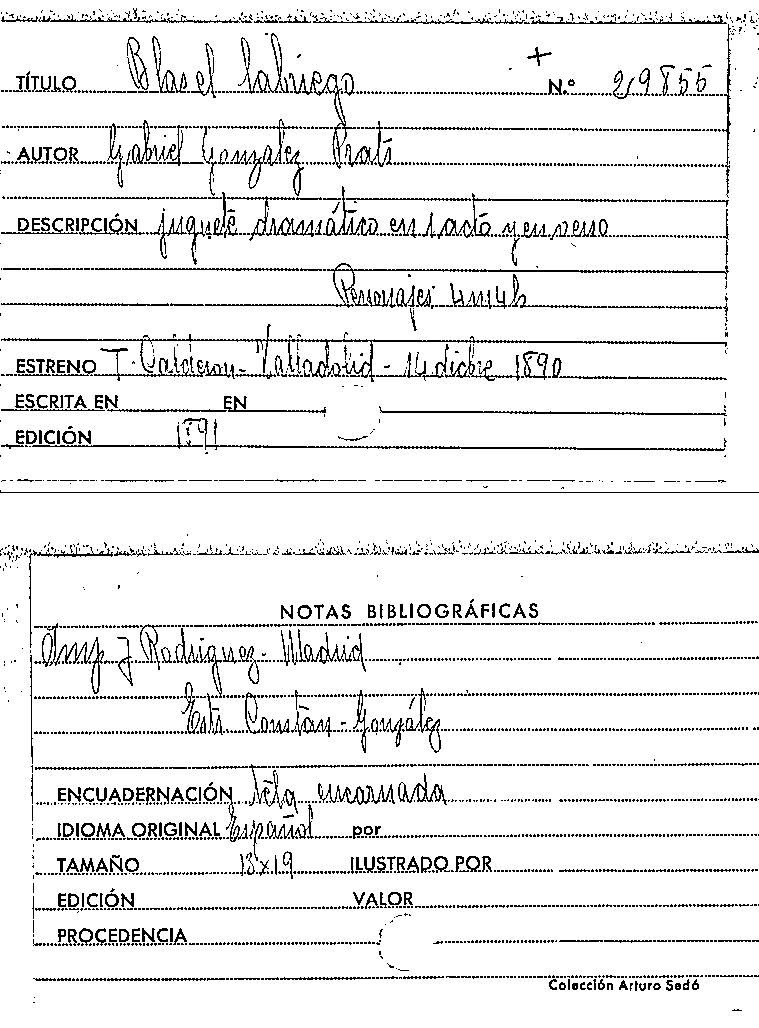 +
TÍTULO Blas el labriego N.º 29855
AUTOR Gabriel Gonzalez Prats
DESCRIPCIÓN juguete dramático en 1 acto y en verso
Personajes 4m4h
ESTRENO T. Calderon - Valladolid - 14 dicbre 1890
ESCRITA EN EN
EDICIÓN 1891
NOTAS BIBLIOGRÁFICAS
Imp J Rodriguez - Madrid
González
ENCUADERNACIÓN tela encarnada
IDIOMA ORIGINAL Español por
TAMAÑO 13x19 ILUSTRADO POR
EDICIÓN VALOR
PROCEDENCIA
Colección Arturo Sedó